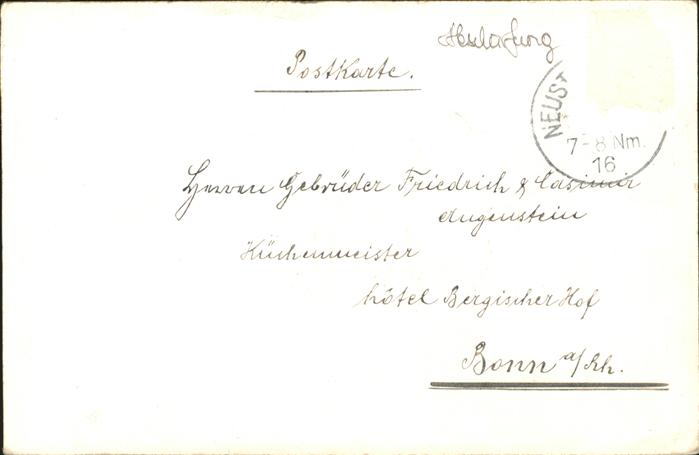 Postkarte.
NEUST
7-8 Nm.
16
Herren Gebrüder Friedrich & Casimir
Augenstein
Küchenmeister
hôtel Bergischer Hof
Bonn a/Rh.